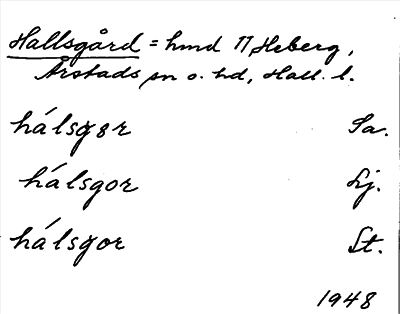 Hallsgård = hmd TT Heberg,
Årstads sn o. hd, Hall. l.
hálsgər Sa.
hálsgor Lj.
hálsgor St.
1948